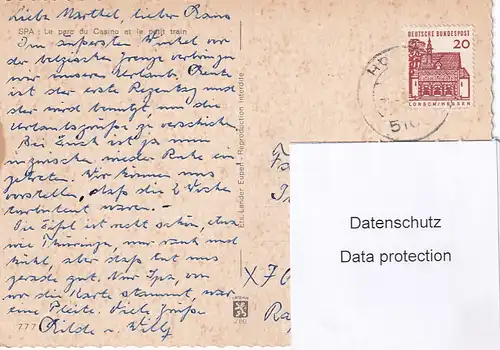 Liebe Marthel, lieber Heino
SPA : Le parc du Casino et le petit train
Im äußersten Winkel vor
der belgischen Grenze verbringen
wir unseren Urlaub. Heute
ist der erste Regentag und
der wird benutzt, um die
Urlaubsgrüße zu verschicken.
Bei Euch ist ja nun
inzwischen wieder Ruhe ein-
getreten. Wir können uns
vorstellen, daß die 2 Woche
turbulent waren. -
Die Eifel ist recht schön, etwa
wie Thüringen, nur rauh und
kühl, aber daß tut uns
gerade gut. Nur Spa, von
wo die Karte stammt, war
eine Pleite. Viele Grüße
Hilde u. Willy
777
Ets. Lander Eupen - Reproduction interdite
DEUTSCHE BUNDESPOST
20
LORSCH/HESSEN
510
X 70
Datenschutz
Data protection